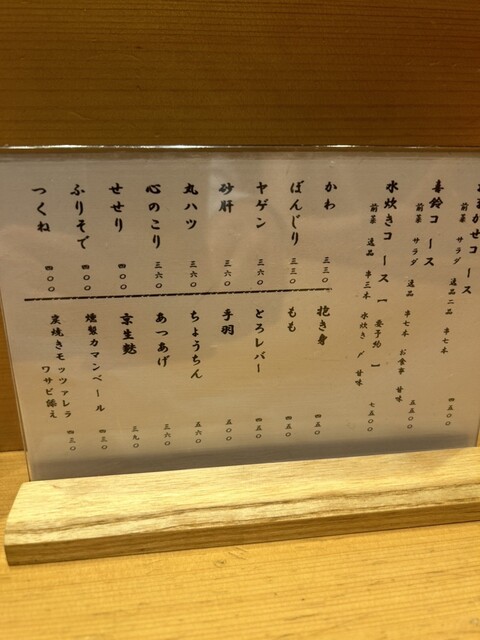 おまかせコース
前菜 サラダ 逸品二品 串七本 四五〇〇
喜鈴コース
前菜 サラダ 逸品 串七本 お食事 甘味 五五〇〇
水炊きコース【要予約】
前菜 逸品 串三本 水炊き 〆 甘味 七五〇〇
かわ 三三〇
ぼんじり 三三〇
ヤゲン 三六〇
砂肝 三六〇
丸ハツ 三六〇
心のこり 三六〇
せせり 四〇〇
ふりそで 四〇〇
つくね 四〇〇
抱き身 四五〇
もも 四五〇
とろレバー 四五〇
手羽 五〇〇
ちょうちん 五六〇
あつあげ 三六〇
京生麩 三九〇
燻製カマンベール 四三〇
炭焼きモッツァレラ
ワサビ添え 四三〇